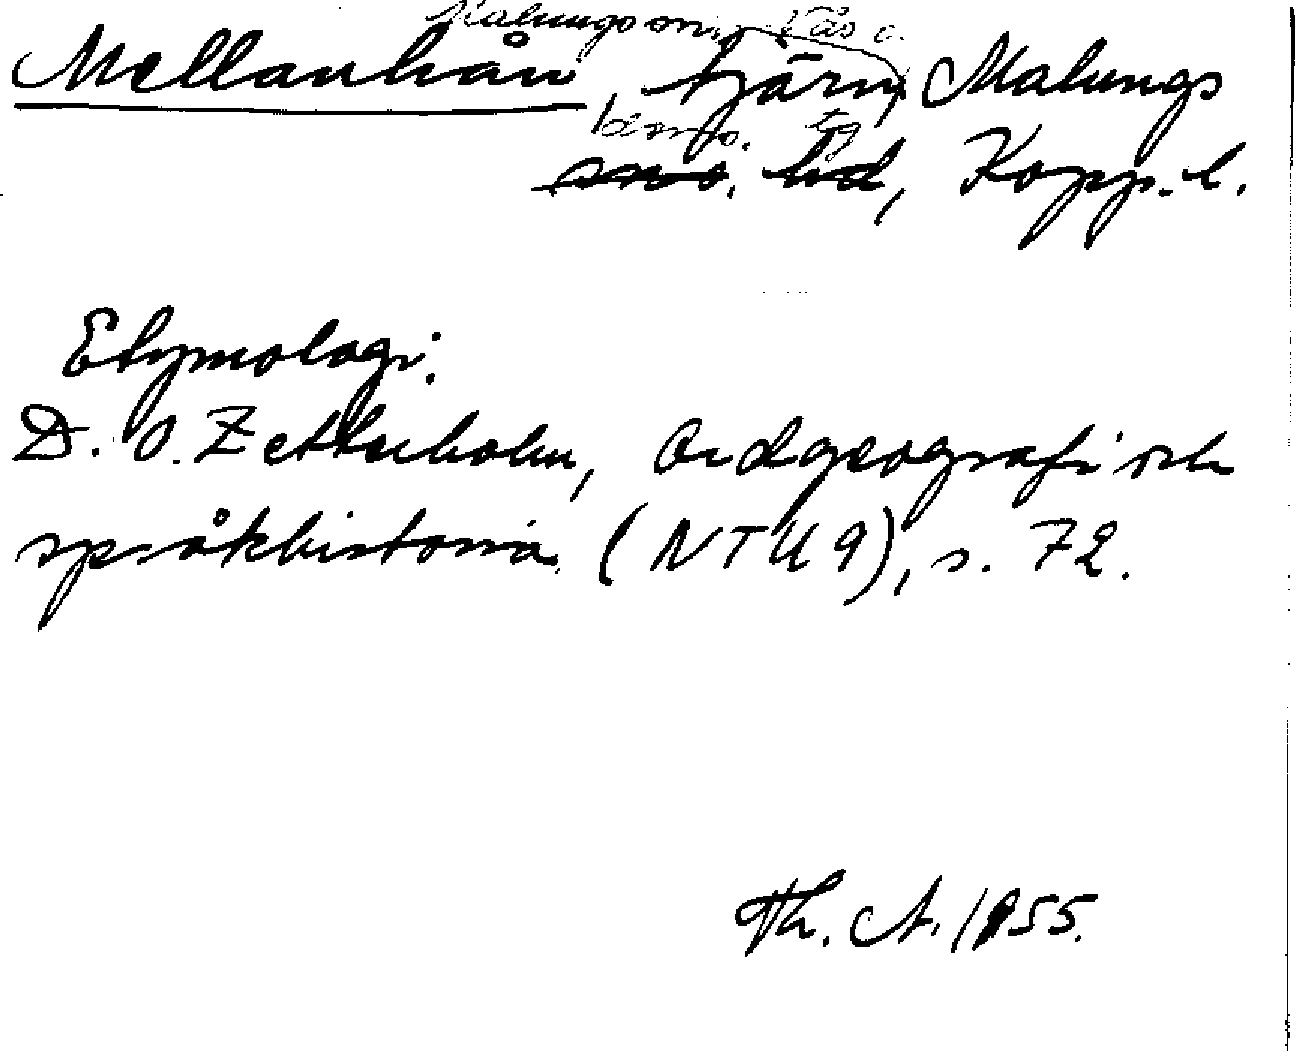 Malungs Näs o.
Mellanhån, tjärn, Malungs
tg
sns. hd, Kopp. l.
Etymologi:
D. O. Zetterholm, Ordgeografi och
språkhistoria (NTU 9), s. 72.
Th. A. 1955.